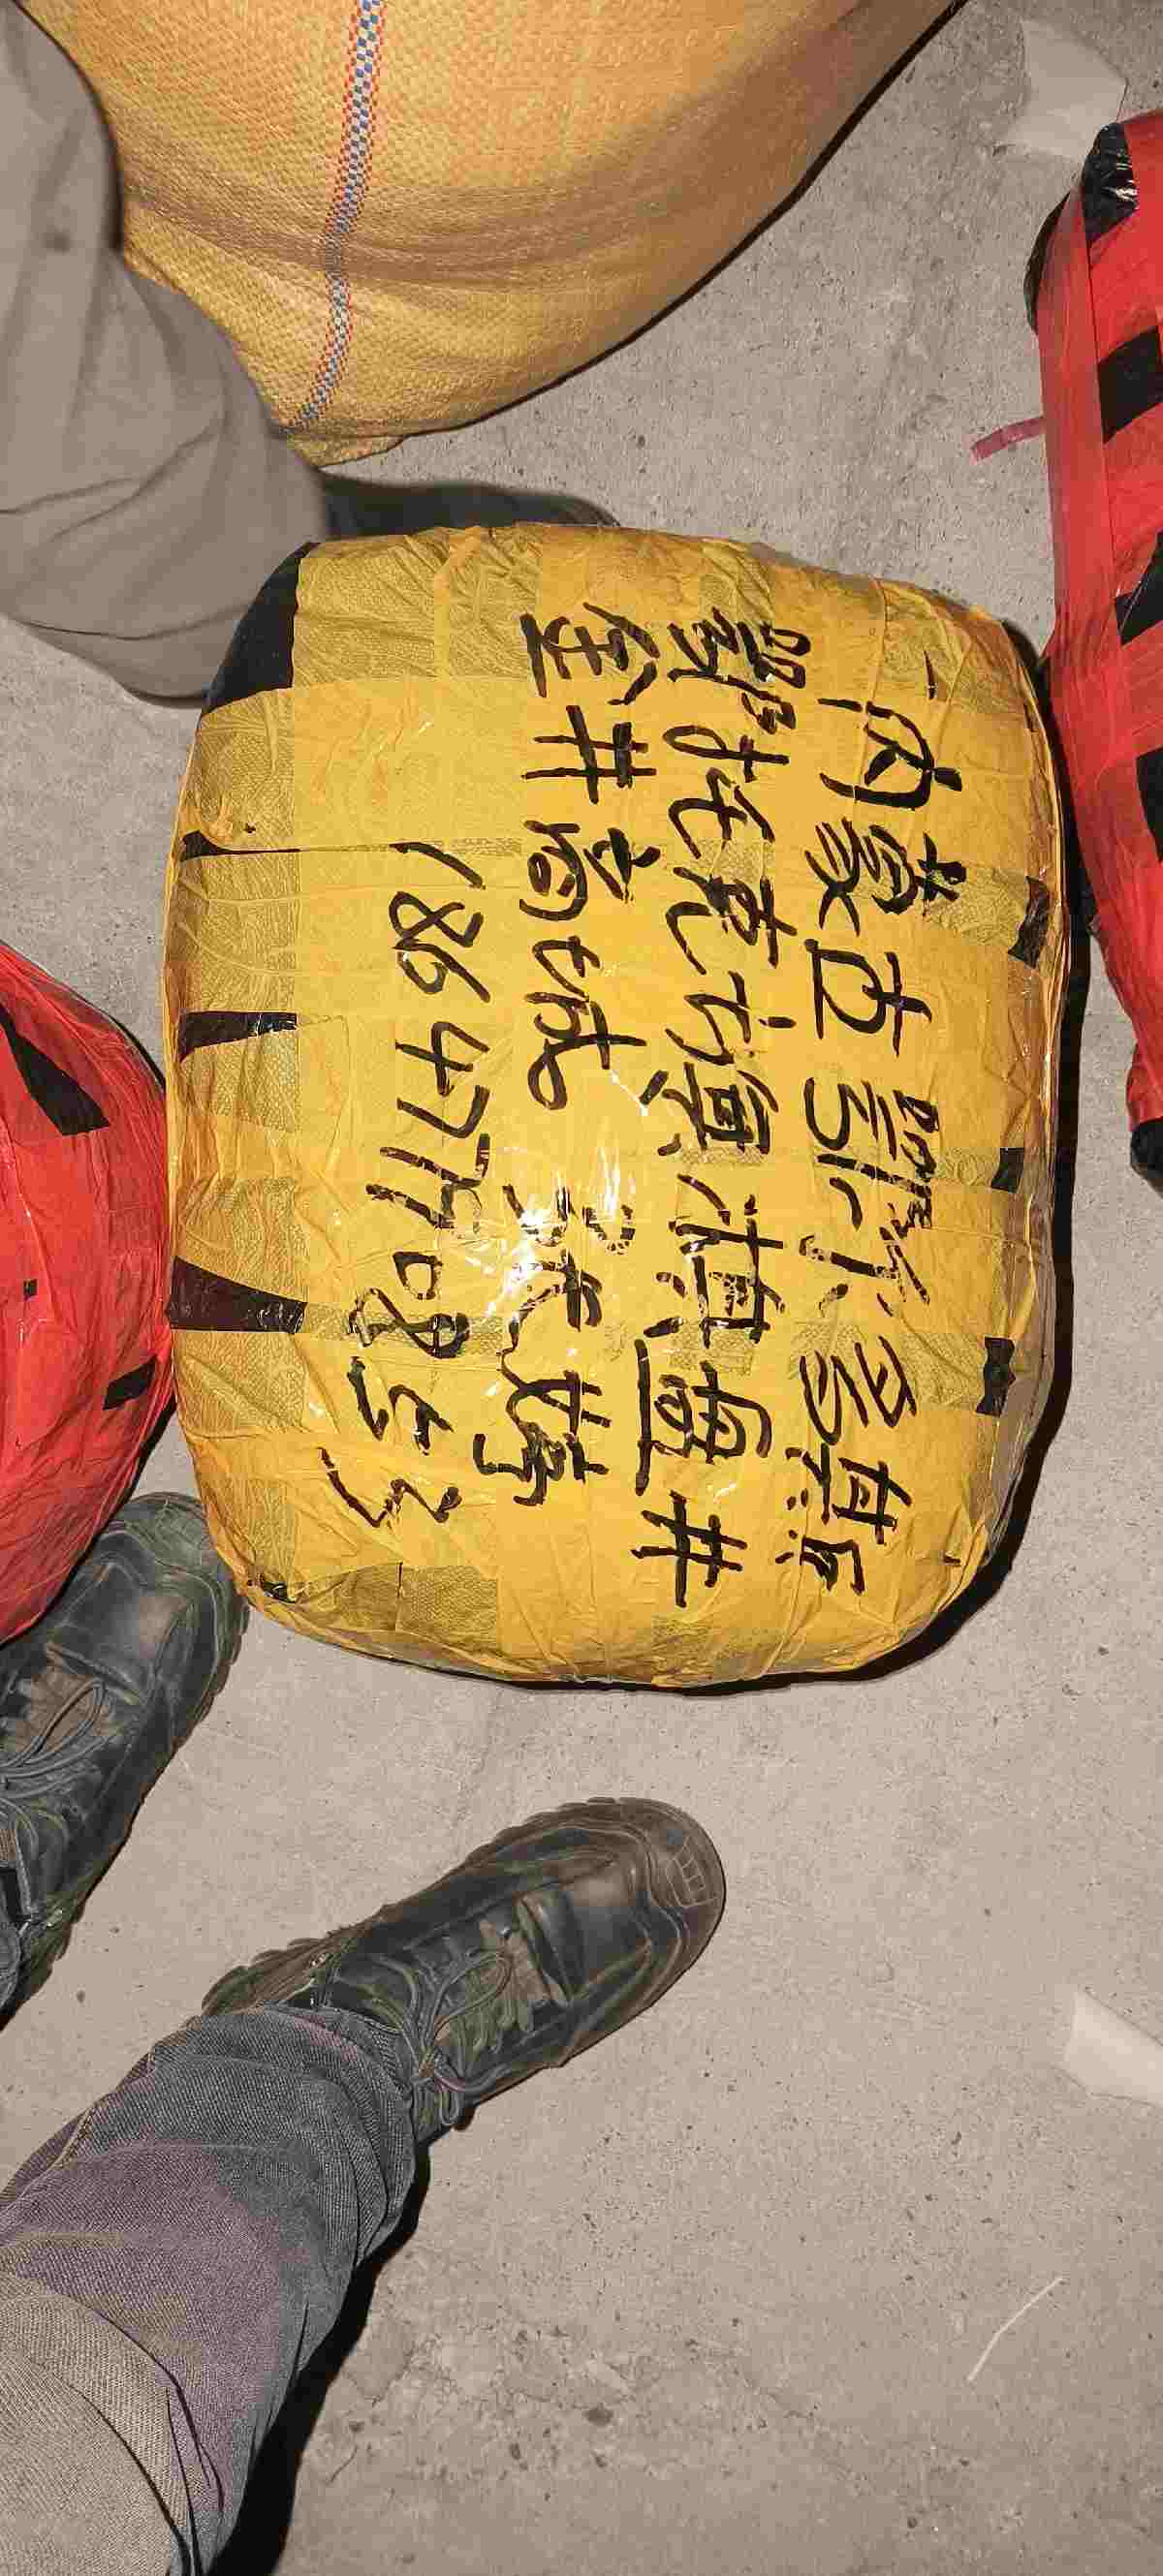 内蒙古鄂尔多斯
鄂托克旗棋盘井
全井商城
18647770853